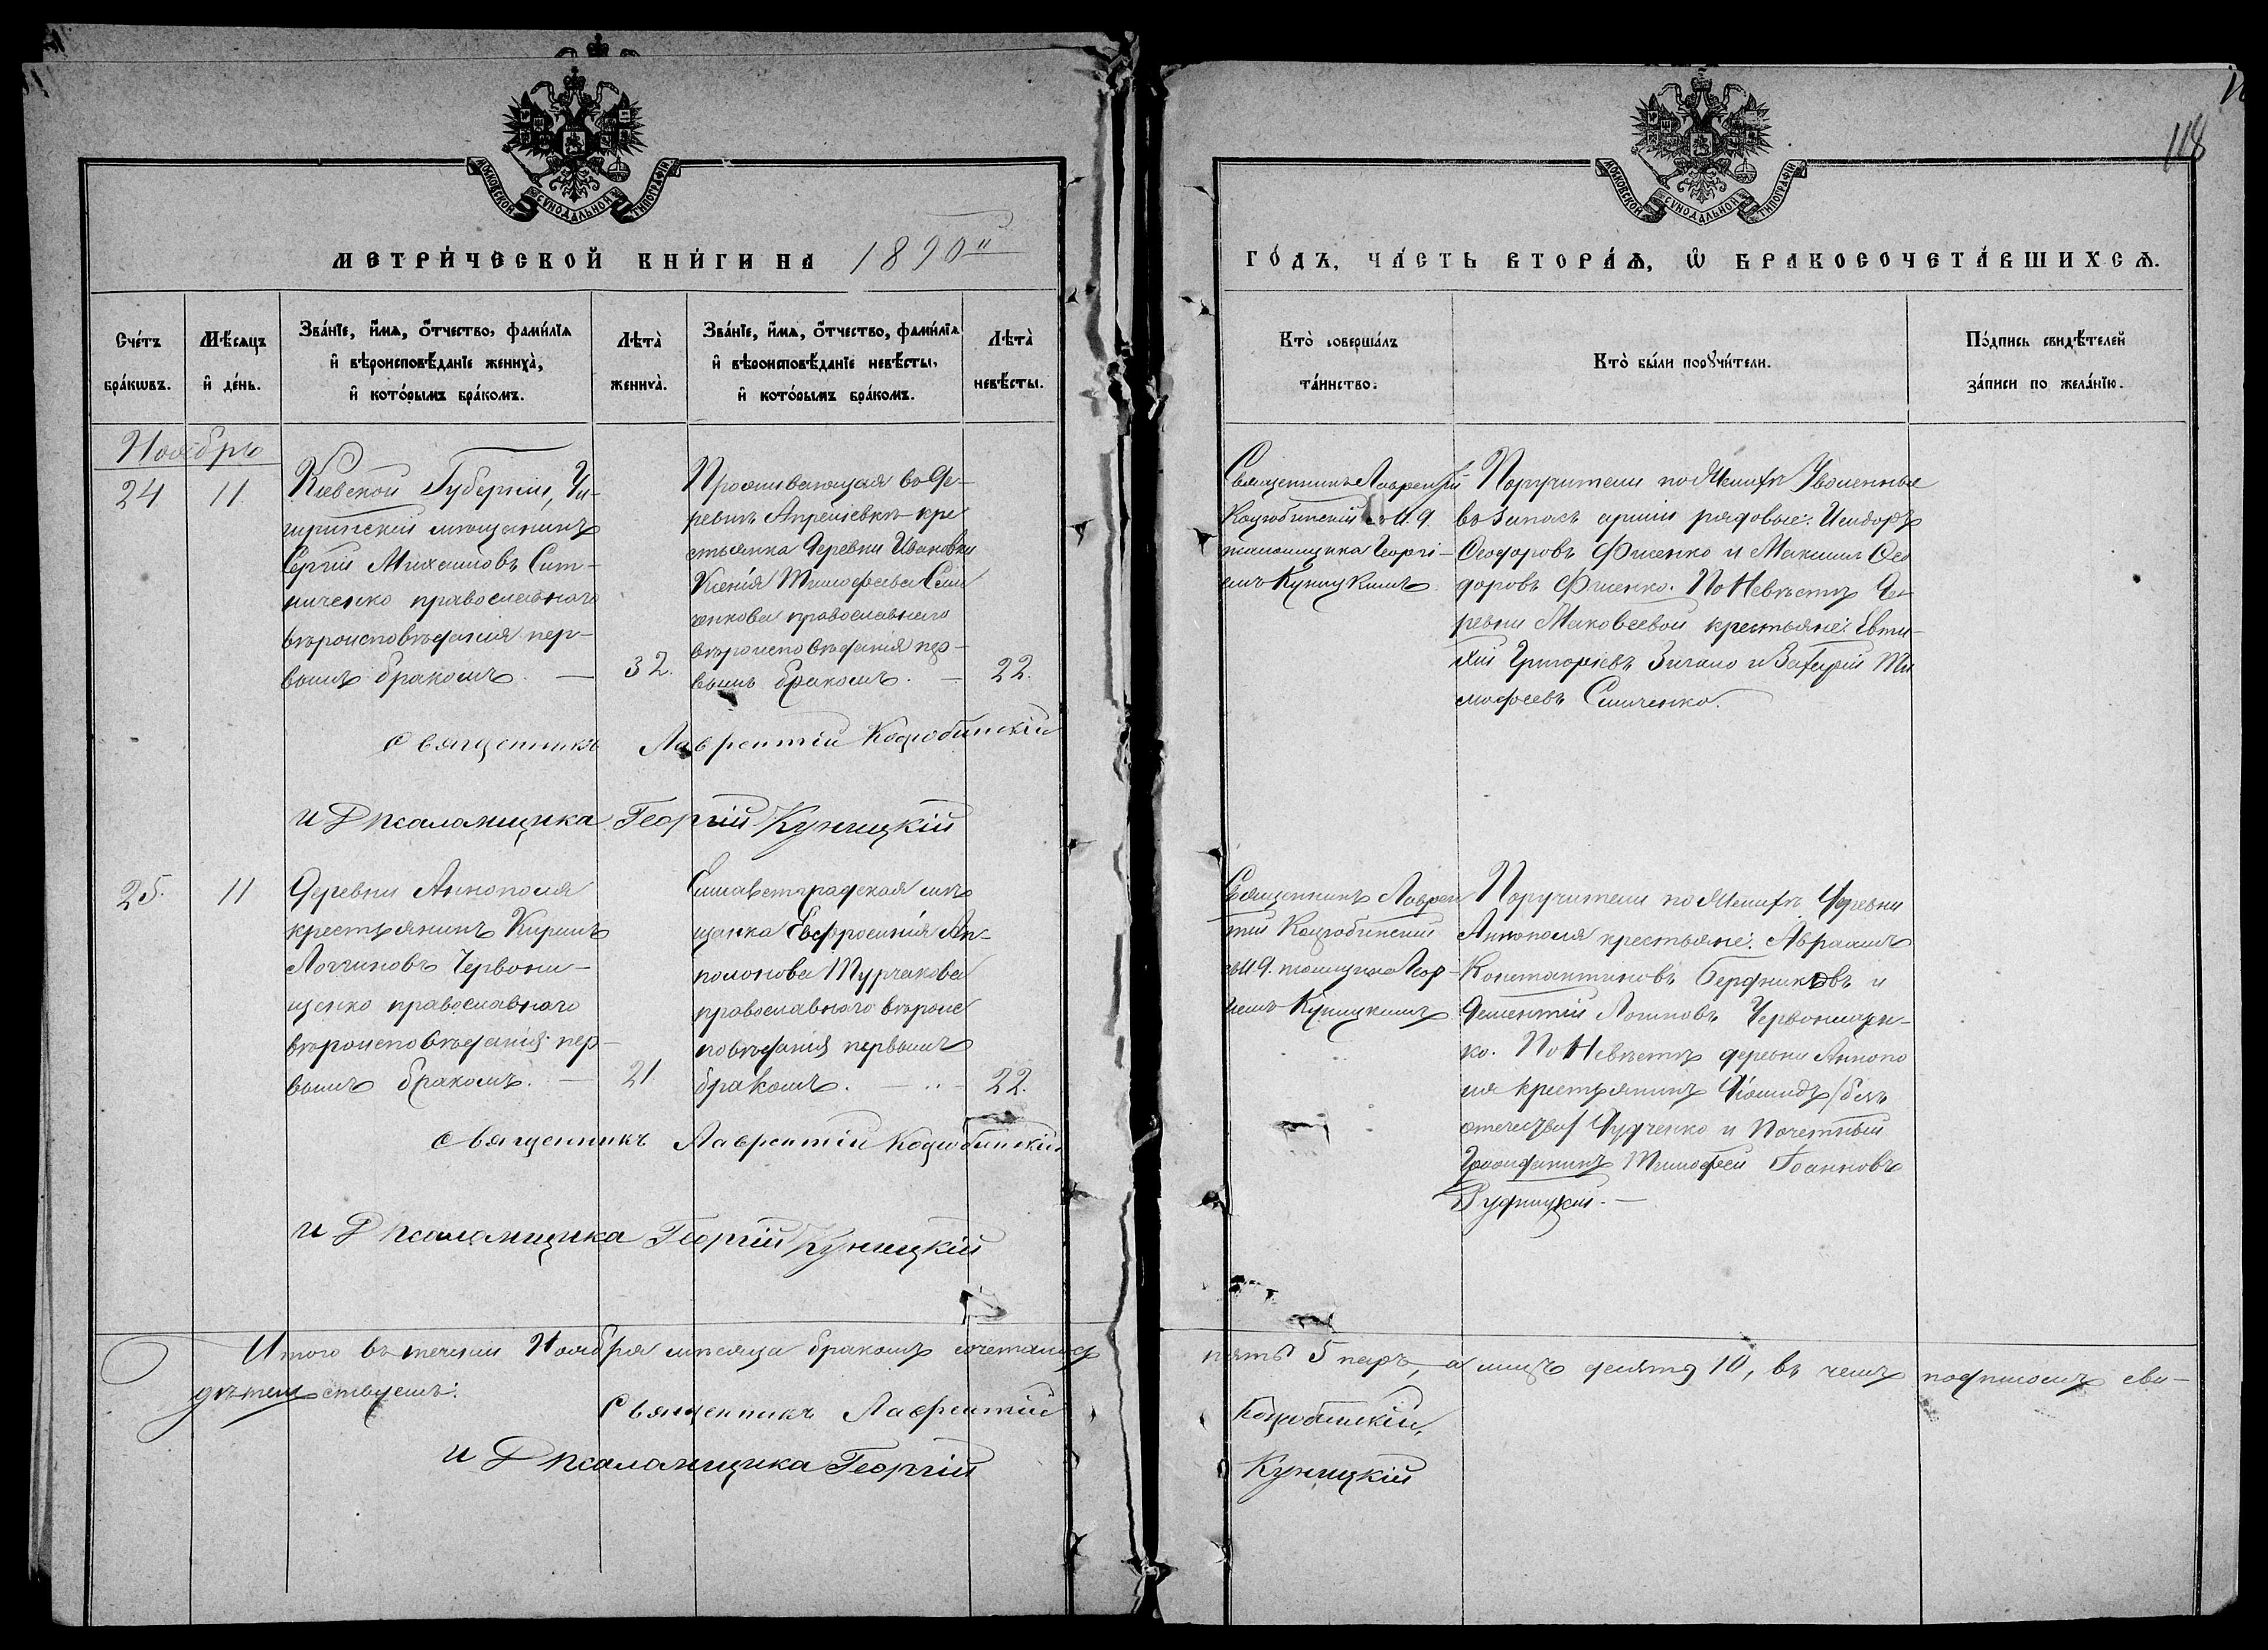 118
МОСКОВСКОЙ СѴНОДАЛЬНОЙ ТИПОГРАФІИ
МОСКОВСКОЙ СѴНОДАЛЬНОЙ ТИПОГРАФІИ
МЕТРИ́ЧЕСКОЙ КНИ́ГИ НА 1890й
ГО́ДЪ, ЧА́СТЬ ВТОРА́Ѧ, Ѡ҆ БРАКОСОЧЕТА́ВШИХСѦ.
Сче́тъ
бра́кѡвъ.
Мѣ́сяцъ
и҆ де́нь.
Зва́нїе, и҆́мѧ, ѻ҆́тчество, фами́лїѧ
и҆ вѣроисповѣ́данїе жениха̀,
и҆ кото́рымъ бра́комъ.
Лѣта̀
жениха̀.
Зва́нїе, и҆́мѧ, ѻ҆́тчество, фами́лїѧ
и҆ вѣроисповѣ́данїе невѣ́сты,
и҆ кото́рымъ бра́комъ.
Лѣта̀
невѣ́сты.
Кто̀ соверша́лъ
та́инство.
Кто̀ бы́ли порꙋчи́тели.
По́дпись свидѣ́телей
за́писи по жела́нїю.
Ноябрь
24
11
Кіевской Губерніи, Чи-
гиринскій мѣщанинъ
Сергій Михаиловъ Сит-
ниченко православнаго
вѣроисповѣданія пер-
вымъ бракомъ. —
32.
Проживающая въ де-
ревнѣ Апреліевкѣ кре
стьянка деревни Ивановки
Ксенія Тимофеева Сим
ченкова православнаго
вѣроисповѣданія пер-
вымъ бракомъ. —
22.
Священникъ Лаврентій
Коцюбинскій съ И. д.
псаломщика Георгі-
емъ Куницкимъ
Поручители по Женихѣ Уволенные
въ запасъ арміи рядовые: Исидоръ
Ѳеодоровъ Фисенко и Максимъ Ѳео
доровъ Фисенко. По Невѣстѣ де
ревни Маковеевой крестьяне: Евти-
хій Григоріевъ и Захарій Ти
мофеевъ Симченко.
Священникъ Лаврентій Коцюбинскій
и Д псаломщика Георгій Куницкій
25.
11
Деревни Аннополя
крестьянинъ Кириллъ
Логгиновъ Червони-
щенко православнаго
вѣроисповѣданія пер-
вымъ бракомъ. —
21.
Елисаветградская мѣ
щанка Евфросинія Ап-
полонова Турчакова
православнаго вѣроис
повѣданія первымъ
бракомъ. —
22.
Священникъ Лаврен
тій Коцюбинскій
съ И д. псаломщика Геор-
гіемъ Куницкимъ
Поручители по Женихѣ Деревни
Аннополя крестьяне: Авраамъ
Константиновъ Бердниковъ и
Дементій Логиновъ Червонищен-
ко. По Невѣстѣ деревни Аннопо
ля крестьянинъ Діомидъ (безъ
отечества) Дудченко и Почетный
Гражданинъ Тимофей Іоанновъ
Рудницкій. —
Священникъ Лаврентій Коцюбинскій
и Д псаломщика Георгій Куницкій
Итого въ теченіи Ноября мѣсяца бракомъ сочеталось пять 5 паръ, а лицъ десять 10, въ чемъ подписомъ сви-
дѣтельствуемъ:
Священникъ Лаврентій Коцюбинскій.
и Д псаломщика Георгій Куницкій